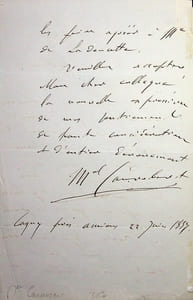 les faire agréer à Mme
de Ladoucette
Veuillez accepter
Mon cher collègue
la nouvelle expression
de mes sentiments
de haute considération
et d'entier dévouement
Mal Canrobert
près amiens 22 Juin 1887